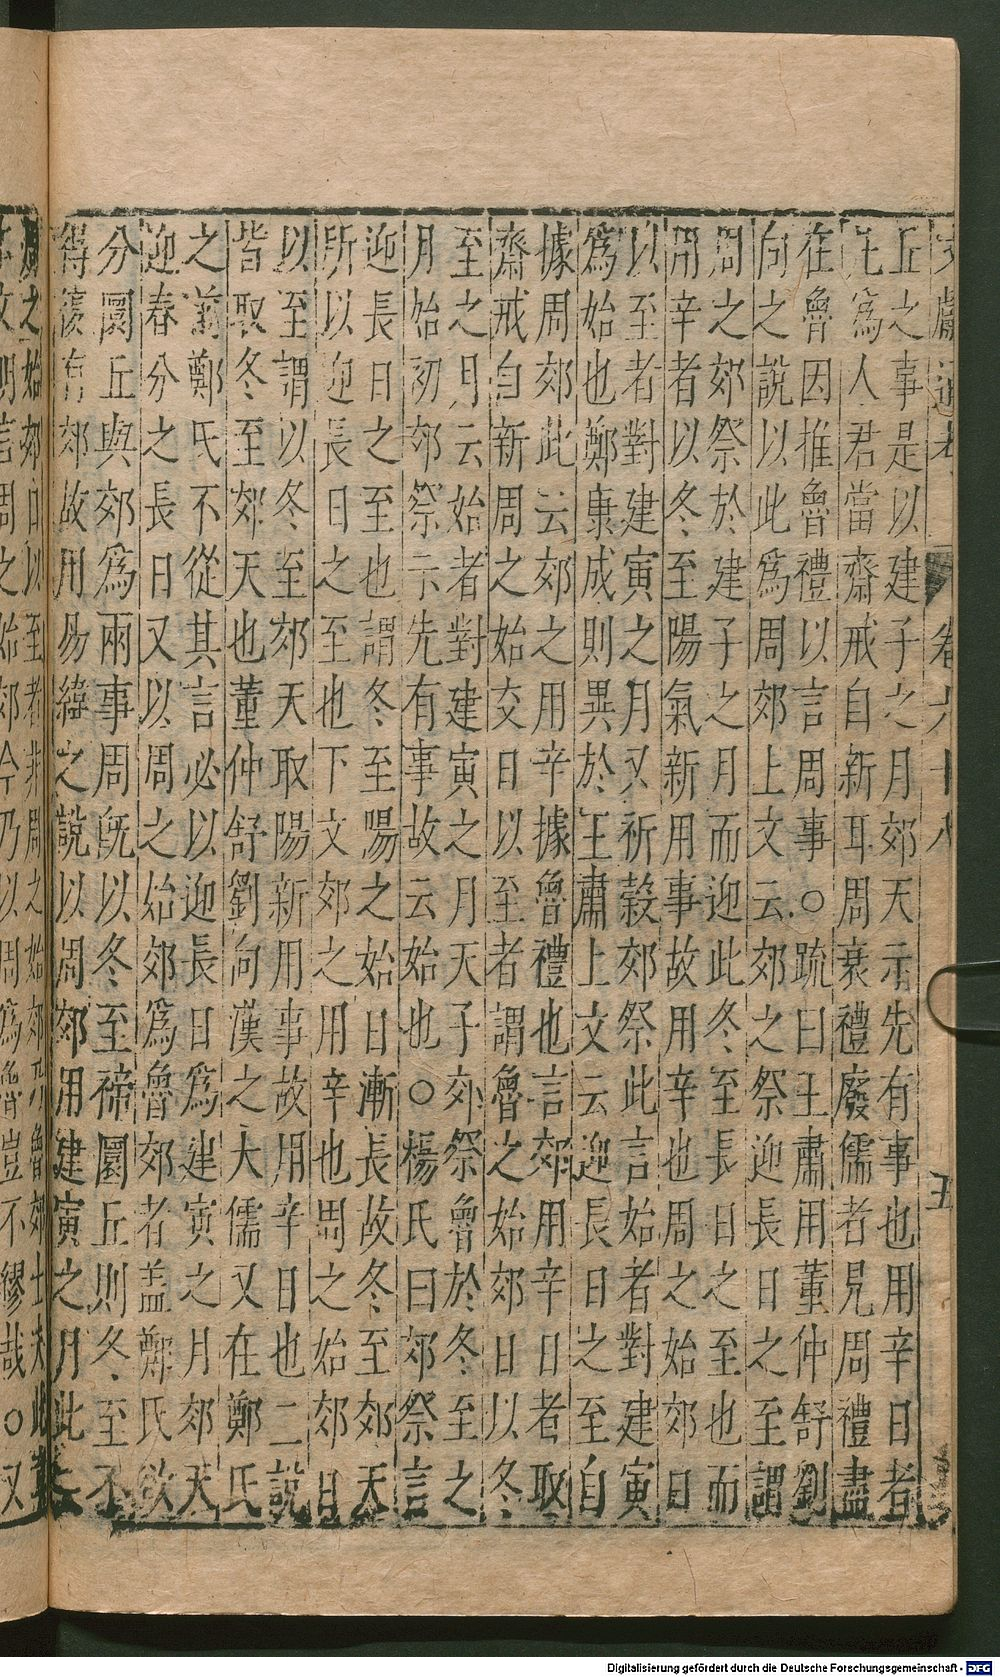 文獻通考 卷六十八 五
丘之事是以建子之月郊天示先有事也用辛日者
凡為人君當齋戒自新耳周衰禮廢儒者見周禮盡
在魯因推魯禮以言周事○疏曰王肅用董仲舒劉
向之說以此為周郊上文云郊之祭迎長日之至謂
周之郊祭於建子之月而迎此冬至長日之至也而
用辛者以冬至陽氣新用事故用辛也周之始郊日
以至者對建寅之月又祈穀郊祭此言始者對建寅
為始也鄭康成則異於王肅上文云迎長日之至自
據周郊此云郊之用辛據魯禮也言郊用辛日者取
齋戒自新周之始交日以至者謂魯之始郊日以冬
至之月云始者對建寅之月天子郊祭魯於冬至之
月始初郊祭示先有事故云始也○楊氏曰郊祭言
迎長日之至也謂冬至陽之始日漸長故冬至郊天
所以迎長日之至也下文郊之用辛也周之始郊日
以至謂以冬至郊天取陽新用事故用辛日也二說
皆取冬至郊天也董仲舒劉向漢之大儒又在鄭氏
之前鄭氏不從其言必以迎長日為建寅之月郊天
迎春分之長日又以周之始郊為魯郊者盖鄭氏欲
分圜丘與郊為兩事周旣以冬至禘圜丘則冬至不
得復有郊故用易緯之說以周郊用建寅之月此
周之始郊日以至者非周之始郊乃魯郊
故明言周之始郊今乃以周為魯豈不繆哉○又
Digitalisierung gefördert durch die Deutsche Forschungsgemeinschaft - DFG